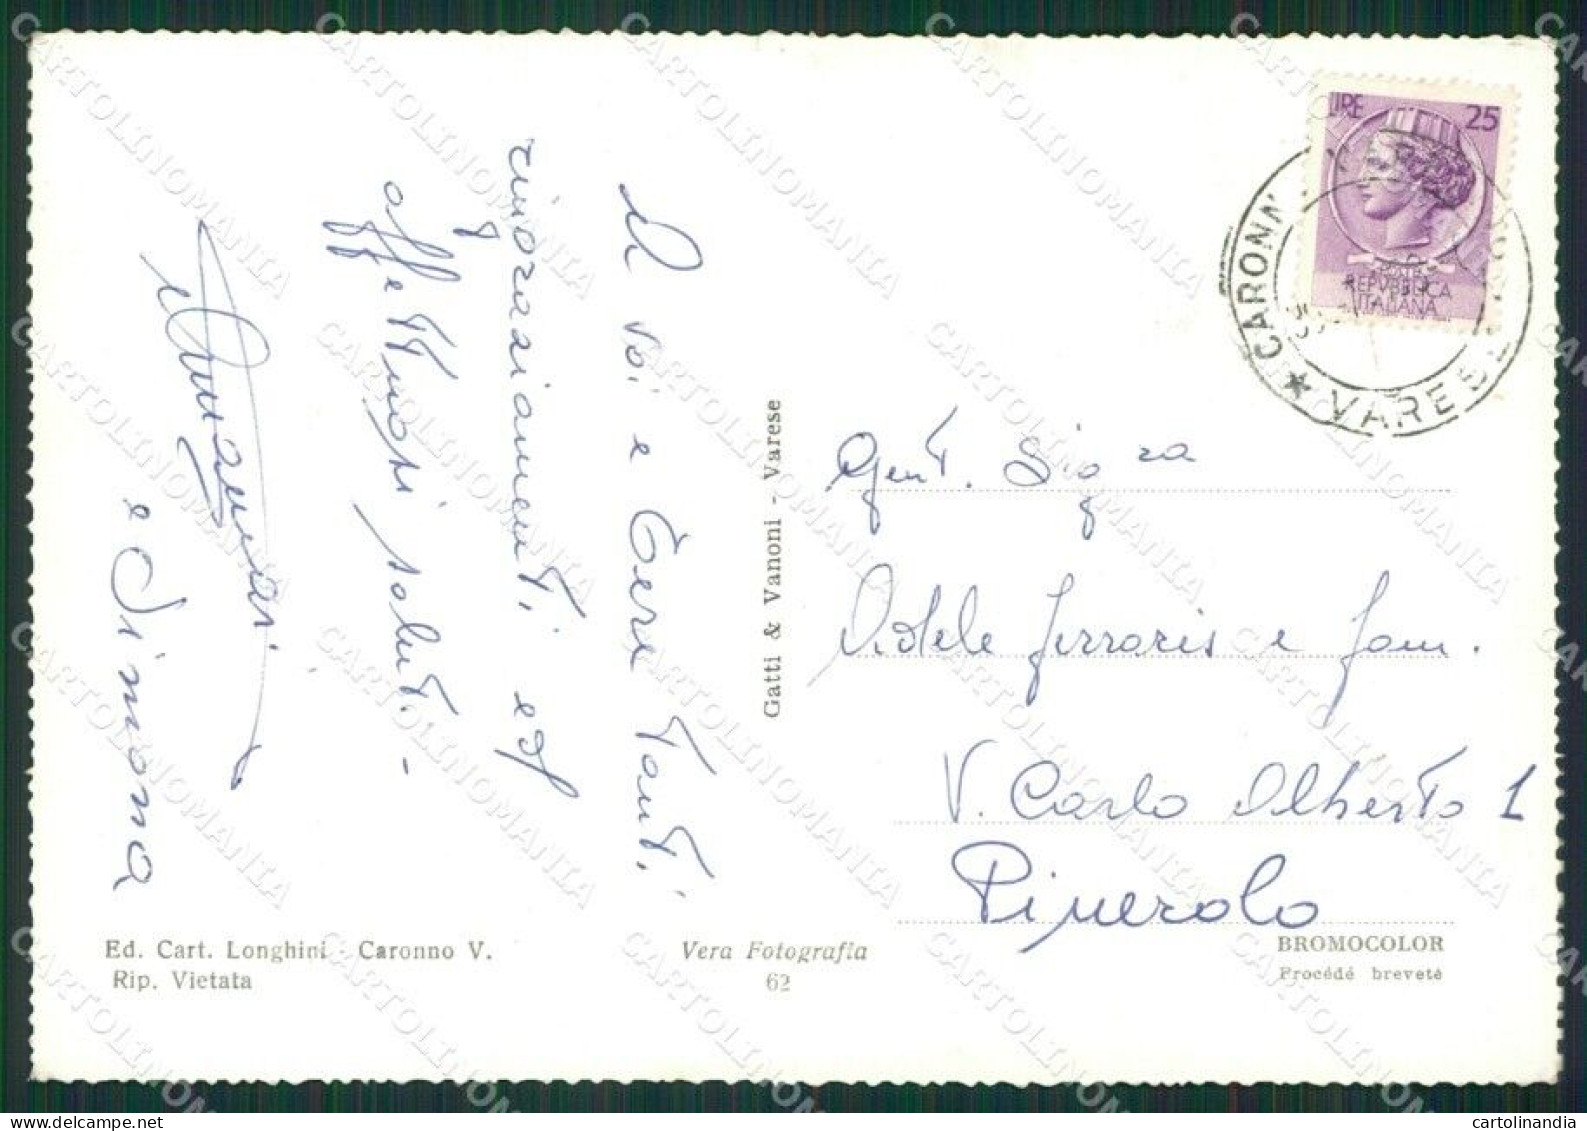 A voi e Tere tanti
ringraziamenti ed
affettuosi saluti. -
e Simona
Gatti & Vanoni - Varese
LIRE 25
REPVBBLICA
ITALIANA
CARONN
VARESE
Gent. Sig.ra
Adele Ferraris e fam.
V. Carlo Alberto 1
Pinerolo
Ed. Cart. Longhini - Caronno V.
Rip. Vietata
Vera Fotografia
62
BROMOCOLOR
Procédé breveté
CARTOLINOMANIA
cartolinandia